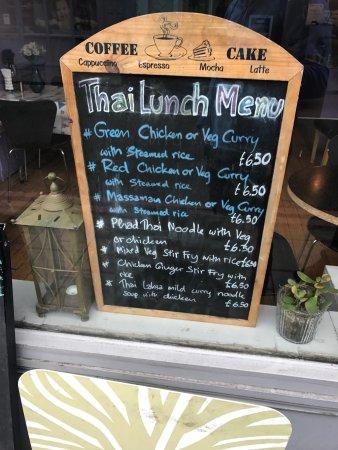 COFFEE CAKE
Cappuccino Espresso Mocha Latte
Thai Lunch Menu
# Green Chicken or Veg Curry
with Steamed rice £6.50
# Red Chicken or Veg Curry
with Steamed rice £6.50
# Massaman Chicken or Veg Curry
with Steamed rice £6.50
# Phad Thai Noodle with Veg
or chicken £6.50
# Mixed Veg Stir Fry with rice £6.50
# Chicken Ginger Stir Fry with
rice £6.50
# Thai Laksa mild curry noodle
Soup with chicken £6.50